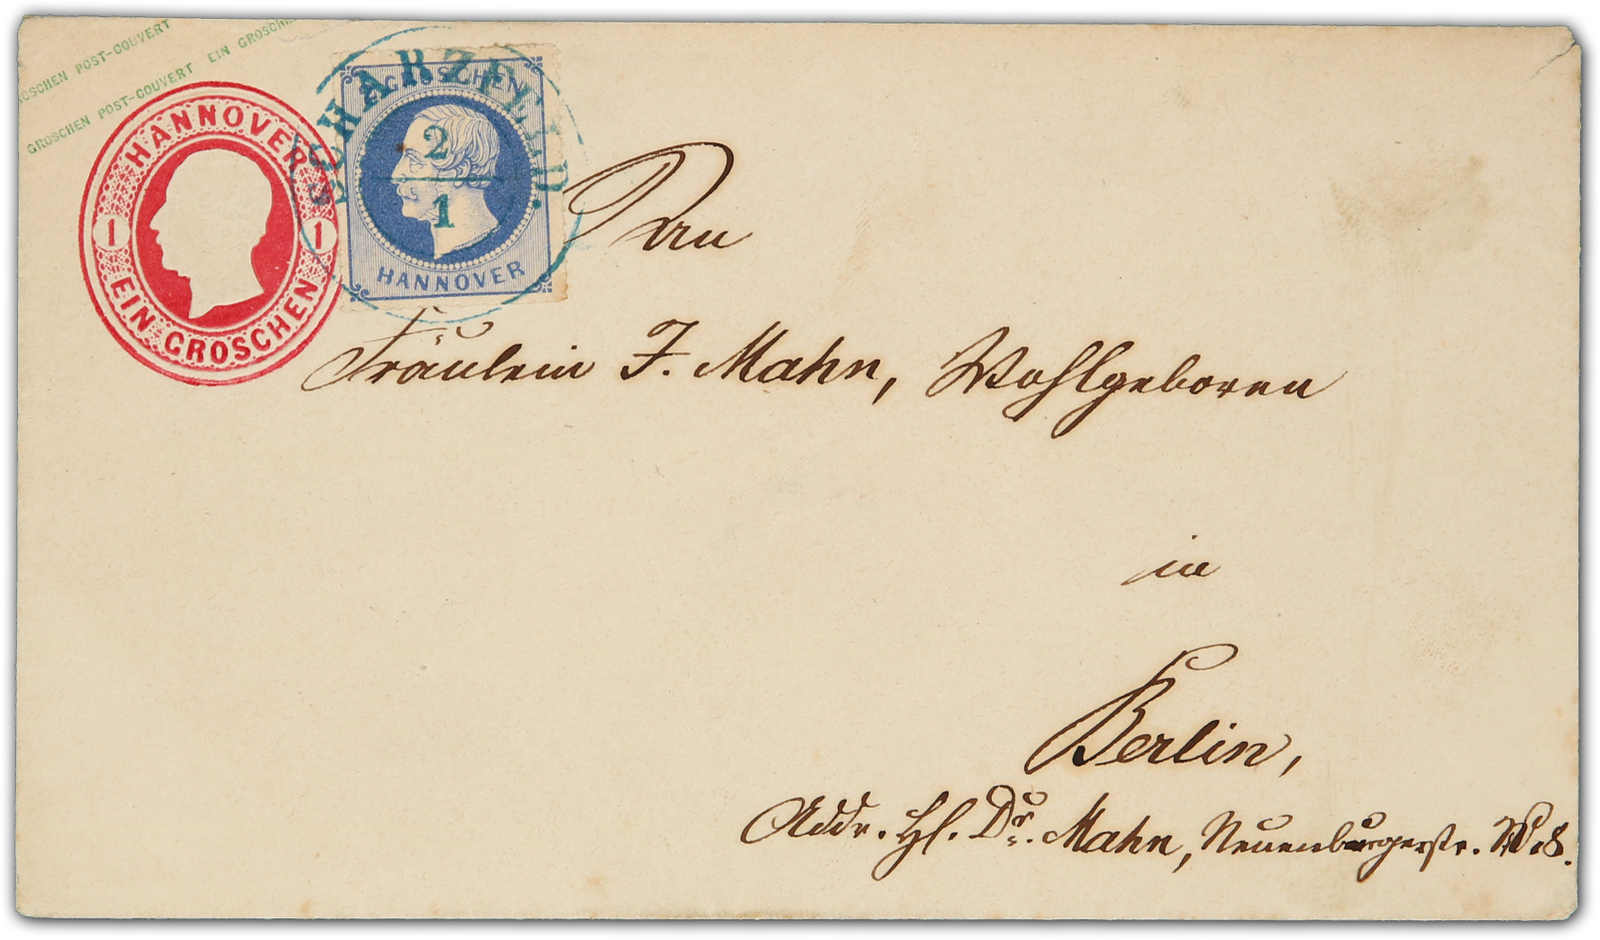 GROSCHEN POST-COUVERT
GROSCHEN POST-COUVERT EIN GROSCHEN
HANNOVER
1 1
EIN GROSCHEN
GROSCHEN
HANNOVER
SCHARZFELD.
2
1
An
Fräulein F. Mahn, Wohlgeboren
in
Berlin,
Addr. Hl. Dr. Mahn, Neuenburgerstr. No. 8.